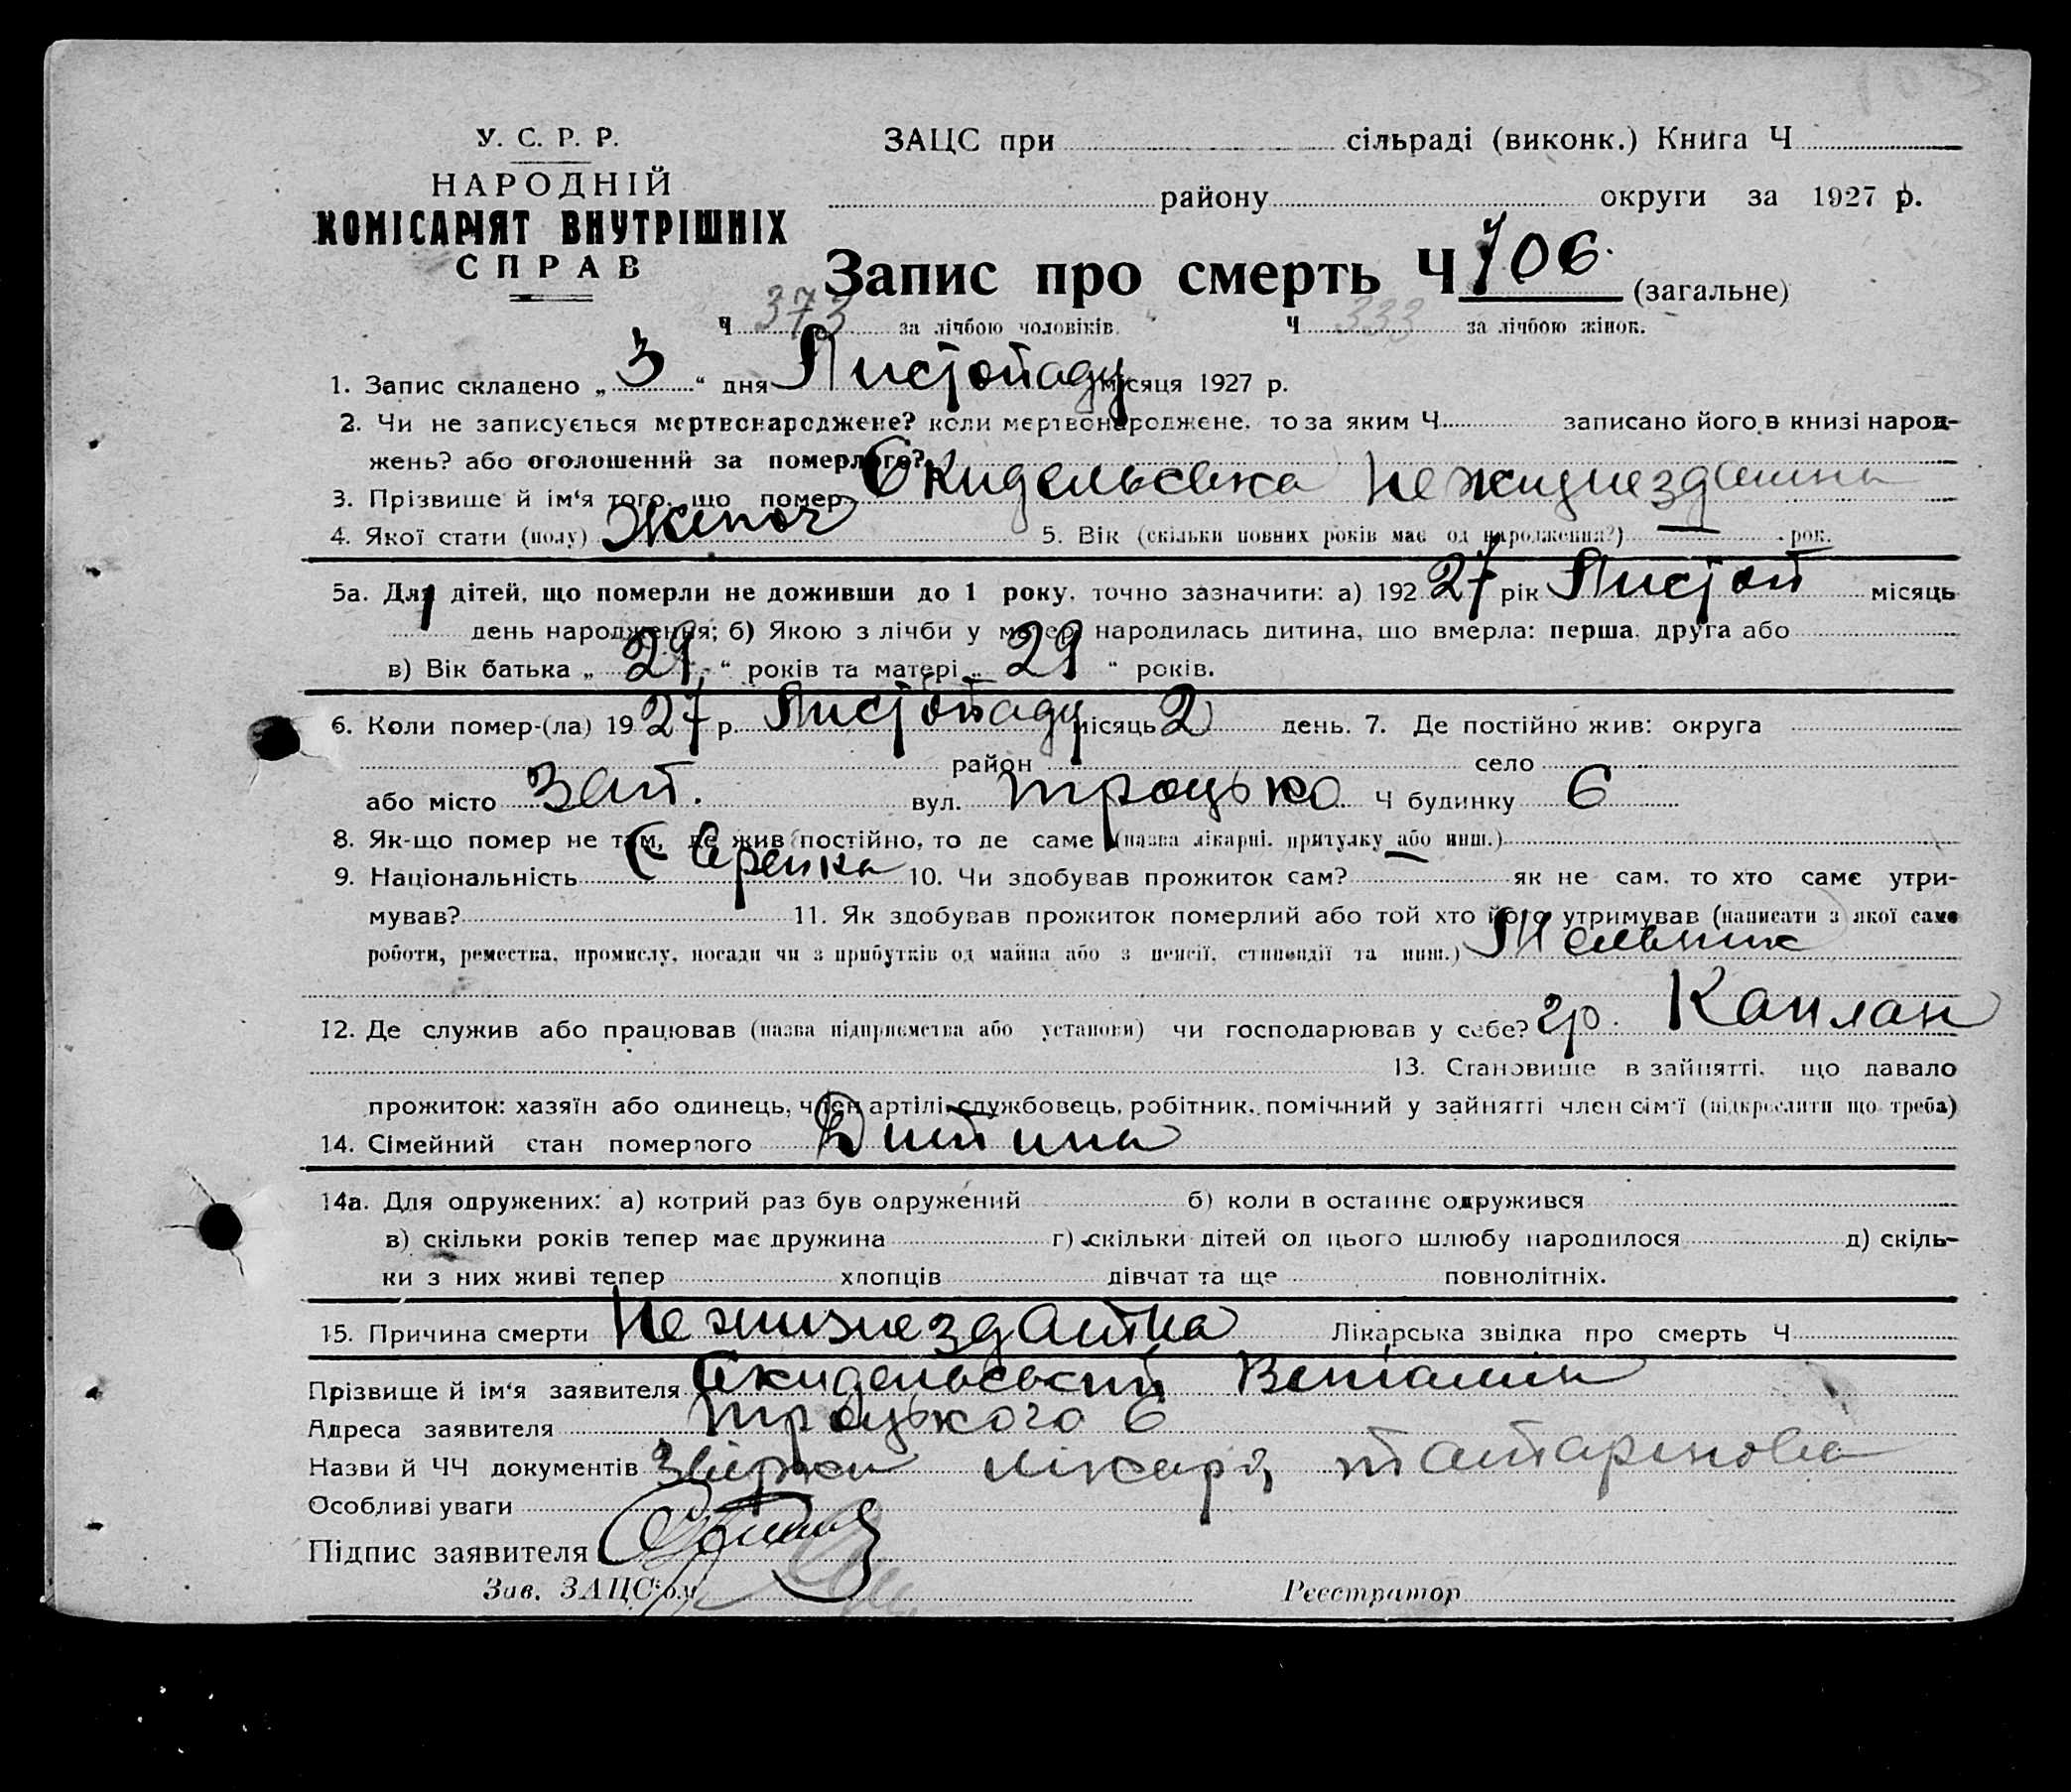 У. С. Р. Р.
НАРОДНІЙ
КОМІСАРІЯТ ВНУТРІШНІХ
СПРАВ
ЗАЦС при сільраді (виконк.) Книга Ч
району округи за 1927 р.
Запис про смерть Ч 706. (загальне)
Ч 373 за лічбою чоловіків. Ч 333 за лічбою жінок.
1. Запис складено „ 3 “ дня Листопаду місяця 1927 р.
2. Чи не записується мертвонароджене? коли мертвонароджене, то за яким Ч записано його в книзі народ-
жень? або оголошений за померлого?
3. Прізвище й ім‘я того, що помер Скидельська Нежизнездатна
4. Якої стати (полу) Жіноч 5. Вік (скільки повних років має од народження?) — рок.
5а. Для дітей, що померли не доживши до 1 року, точно зазначити: а) 192 27 рік Листоп місяць
1 день народження; б) Якою з лічби у матері народилась дитина, що вмерла: перша, друга або
в) Вік батька „ 29 “ років та матері „ 29 “ років.
6. Коли помер-(ла) 19 27 р. Листопаду місяць 2 день. 7. Де постійно жив: округа
район село
або місто Зап. вул. Троцько Ч будинку 6
8. Як-що помер не там, де жив постійно, то де саме (назва лікарні, притулку або инш.) —
9. Національність Єврейка 10. Чи здобував прожиток сам? як не сам, то хто саме утри-
мував? 11. Як здобував прожиток померлий або той хто його утримував (написати з якої саме
роботи, ремества, промислу, посади чи з прибутків од майна або з пенсії, стипендії та инш.) Мельник
12. Де служив або працював (назва підприємства або установи) чи господарював у себе? гр. Каплан
13. Становище в зайнятті, що давало
прожиток: хазяїн або одинець, член артілі, службовець, робітник, помічний у зайнятті член сім‘ї (підкреслити що треба)
14. Сімейний стан померлого Дитина
14а. Для одружених: а) котрий раз був одружений б) коли в останнє одружився
в) скільки років тепер має дружина г) скільки дітей од цього шлюбу народилося д) скіль-
ки з них живі тепер хлопців дівчат та ще повнолітніх.
15. Причина смерти Нежизнездатна Лікарська звідка про смерть Ч
Прізвище й ім‘я заявителя Скидельський Веніамін
Адреса заявителя Троцького 6
Назви й ЧЧ документів лікаря Татаринова
Особливі уваги
Підпис заявителя
Зав. ЗАЦС‘ом Реєстратор